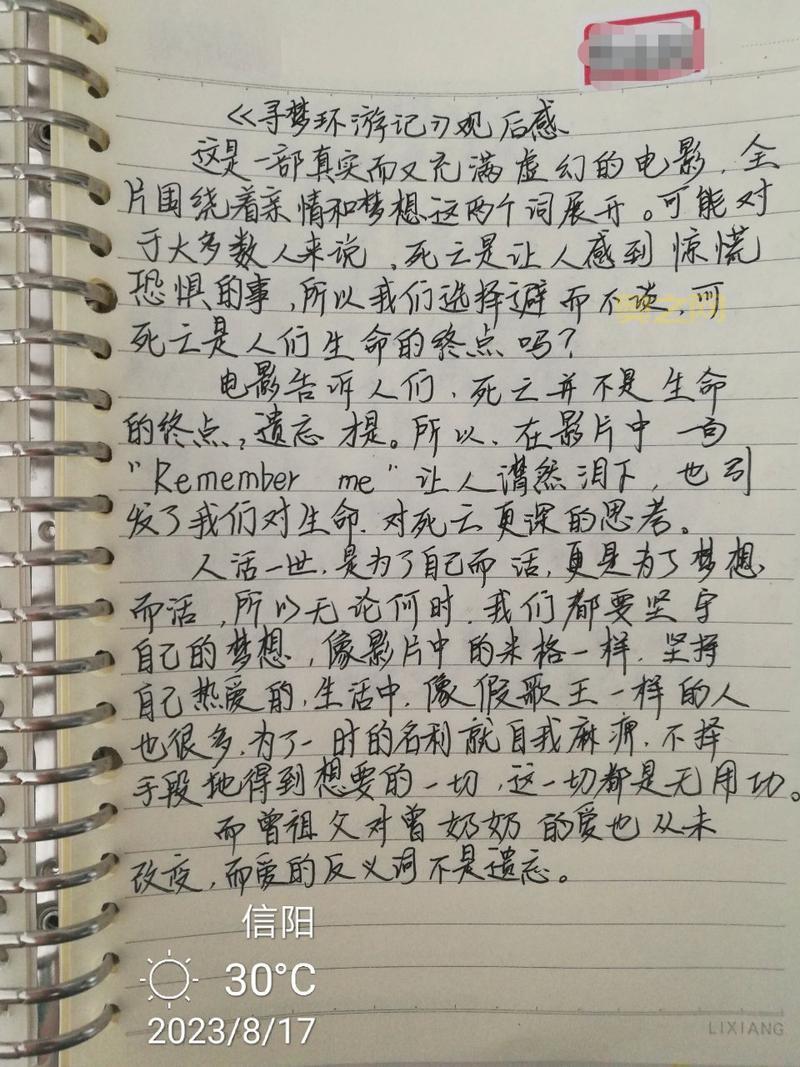 《寻梦环游记》观后感
这是一部真实而又充满虚幻的电影，全
片围绕着亲情和梦想这两个词展开。可能对
于大多数人来说，死亡是让人感到惊慌
恐惧的事，所以我们选择避而不谈，可
死亡是人们生命的终点吗？
电影告诉人们，死亡并不是生命
的终点，遗忘才是。所以，在影片中一句
"Remember me"让人潸然泪下，也引
发了我们对生命、对死亡更深的思考。
人活一世，是为了自己而活，更是为了梦想
而活，所以无论何时，我们都要坚守
自己的梦想，像影片中的米格一样，坚持
自己热爱的，生活中，像假歌王一样的人
也很多，为了一时的名利就自我麻痹，不择
手段地得到想要的一切，这一切都是无用功。
而曾祖父对曾奶奶的爱也从未
改变，而爱的反义词不是遗忘。
信阳
30°C
2023/8/17
LIXIANG